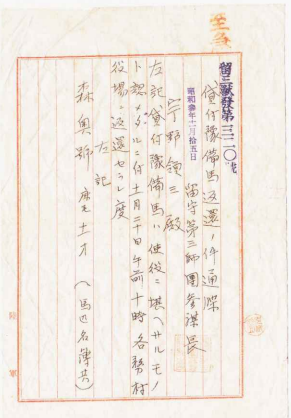 至急
留三獣發第三三〇號
貸付豫備馬返還ノ件通牒
昭和拾年十一月拾五日
留守第三師團參謀長
宇野領三殿
左記貸付豫備馬ハ使役ニ堪ヘサルモノ
ト認メタルニ付十一月三十日午前十時各務村
役場ニ返還セラレ度
左記
森奥號 鹿毛 十才 (馬匹名簿共)
陸軍